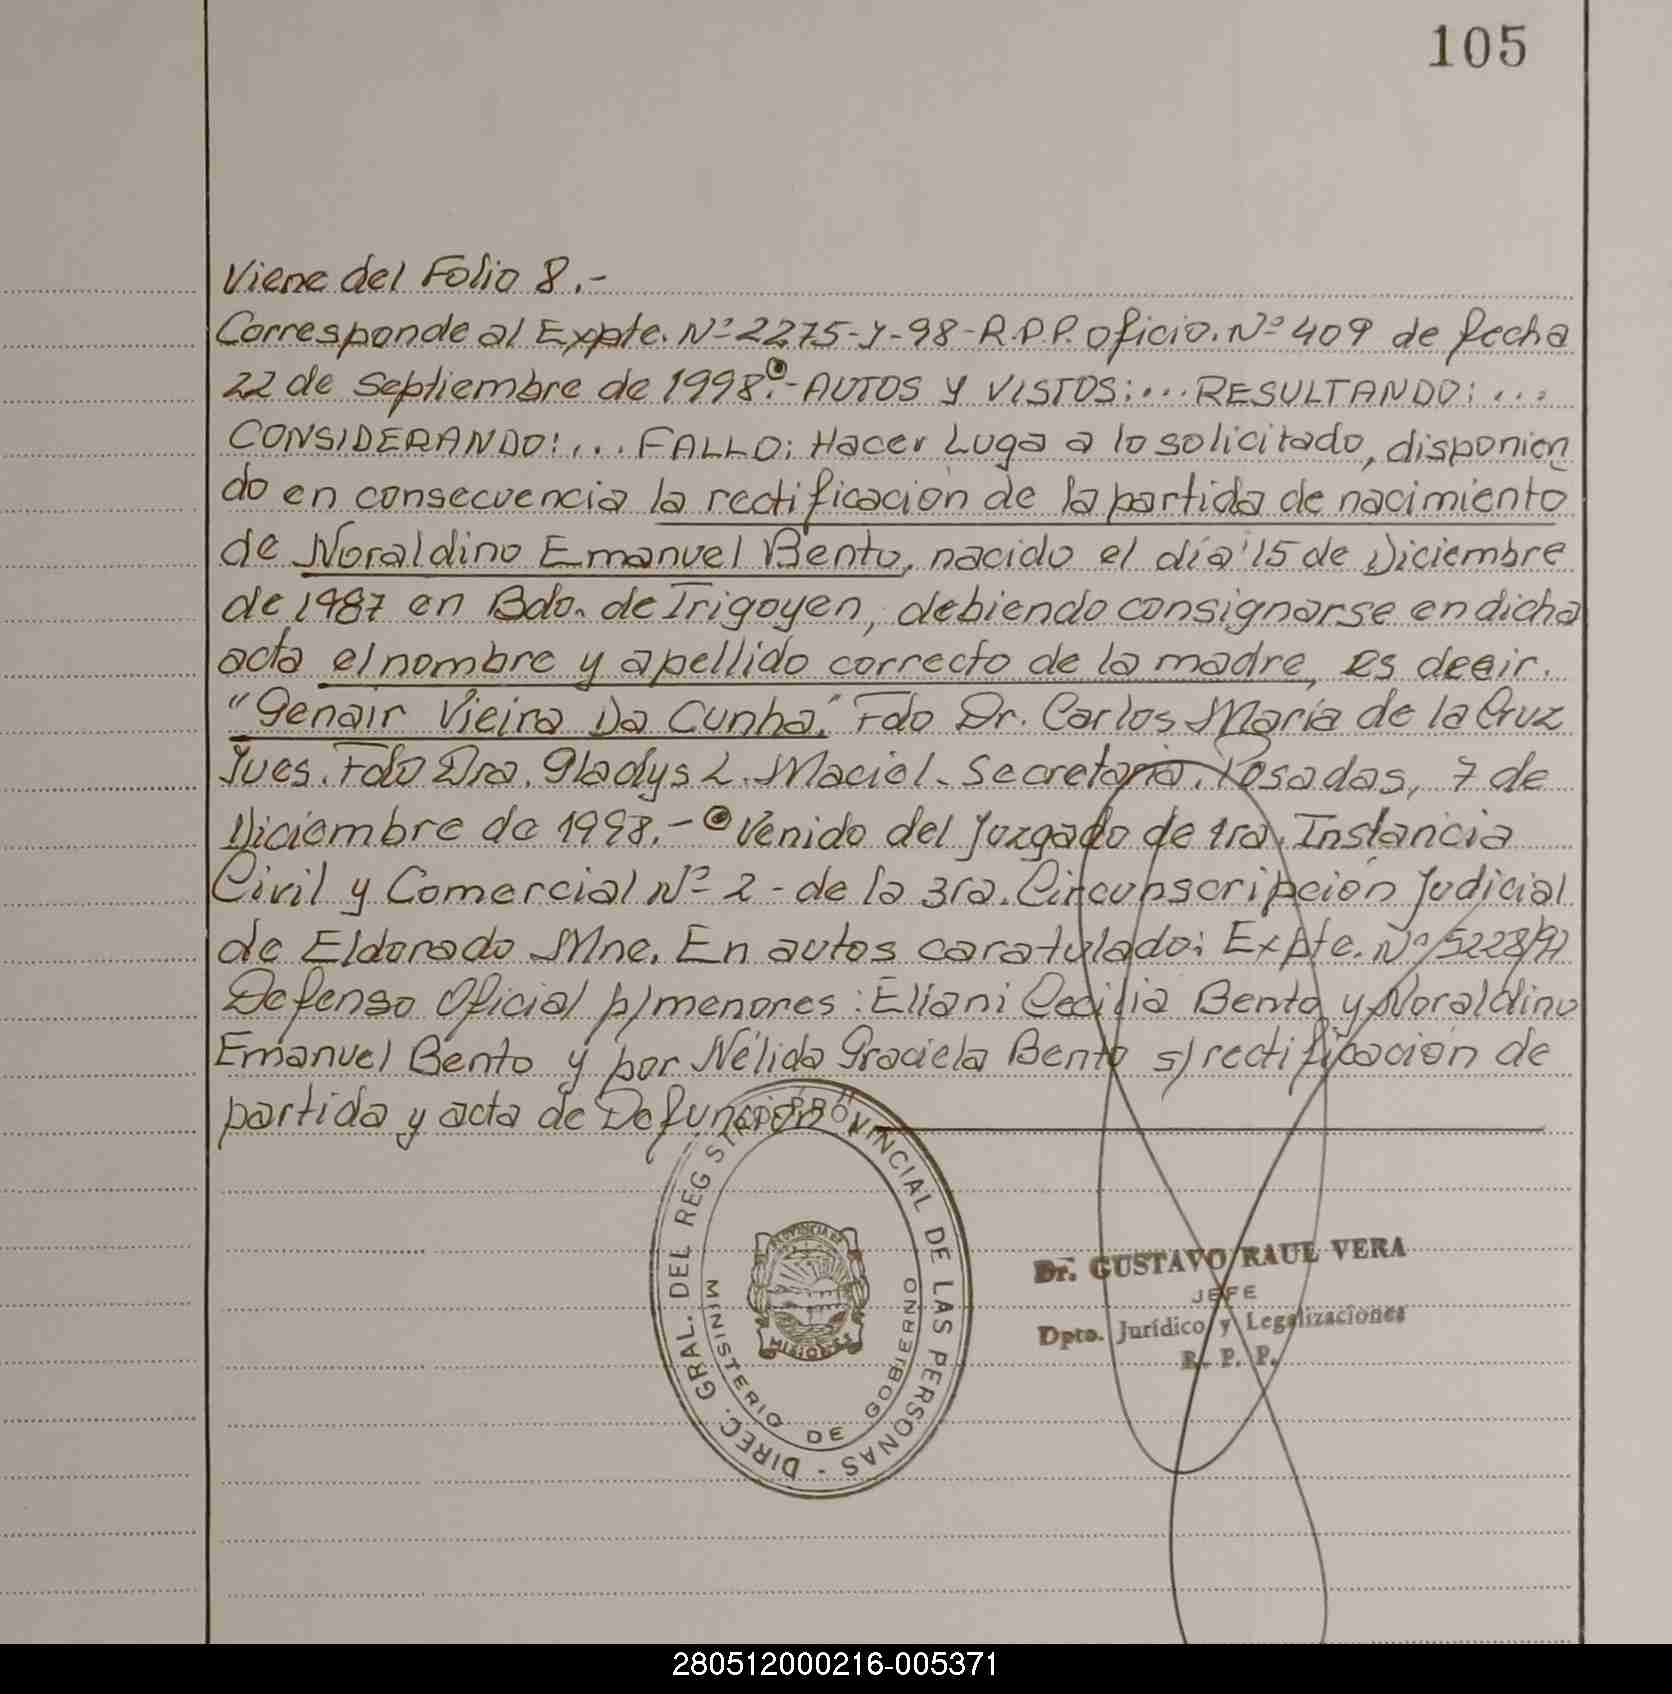 105
Viene del Folio 8.-
Corresponde al Expte. Nº 2275-J-98-R.P.P. Oficio. Nº 409 de fecha
22 de Septiembre de 1998.- AUTOS Y VISTOS:... RESULTANDO:...
CONSIDERANDO:... FALLO: Hacer Luga a lo solicitado, disponien
do en consecuencia la rectificación de la partida de nacimiento
de Noraldino Emanuel Bento, nacido el día 15 de Diciembre
de 1987 en Bdo. de Irigoyen, debiendo consignarse en dicha
acta el nombre y apellido correcto de la madre, es decir.
"Genair Vieira Da Cunha." Fdo Dr. Carlos María de la Cruz
Jues. Fdo Dra. Gladys L. Maciel. Secretaria. Posadas, 7 de
Diciembre de 1998.- Venido del Juzgado de 1ra. Instancia
Civil y Comercial Nº 2 - de la 3ra. Circunscripción Judicial
de Eldorado Mne. En autos caratulado: Expte. Nº
Defenso Oficial p/menores: Eliani Cecilia Bento y Noraldino
Emanuel Bento y por Nélida Graciela Bento s/rectificación de
partida y acta de Defunción"
DIREC. GRAL. DEL REGISTRO PROVINCIAL DE LAS PERSONAS -
MINISTERIO DE GOBIERNO
PROVINCIA DE
MISIONES
Dr. GUSTAVO RAUL VERA
JEFE
Dpto. Jurídico y Legalizaciones
R. P. P.
280512000216-005371